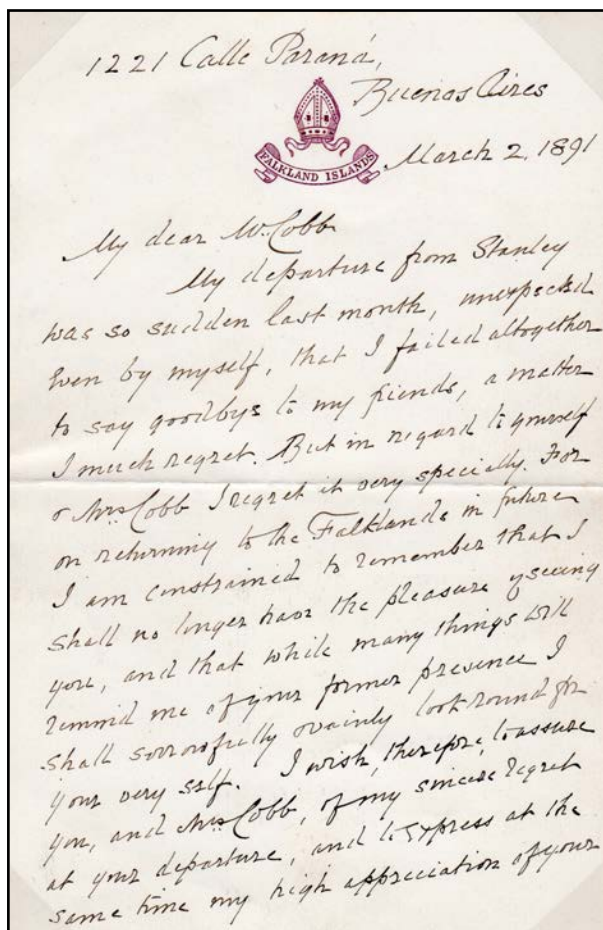 1221 Calle Paraná,
Buenos Aires
FALKLAND ISLANDS
March 2. 1891
My dear Mr. Cobb
My departure from Stanley
was so sudden last month, unexpected
even by myself, that I failed altogether
to say goodbys to my friends, a matter
I much regret. But in regard to yourself
& Mrs. Cobb I regret it very specially. For
on returning to the Falklands in future
I am constrained to remember that I
shall no longer have the pleasure of seeing
you, and that while many things will
remind me of your former presence I
shall sorrowfully & vainly look round for
your very self. I wish, therefore, to assure
you, and Mrs. Cobb, of my sincere regret
at your departure, and to express at the
same time my high appreciation of your